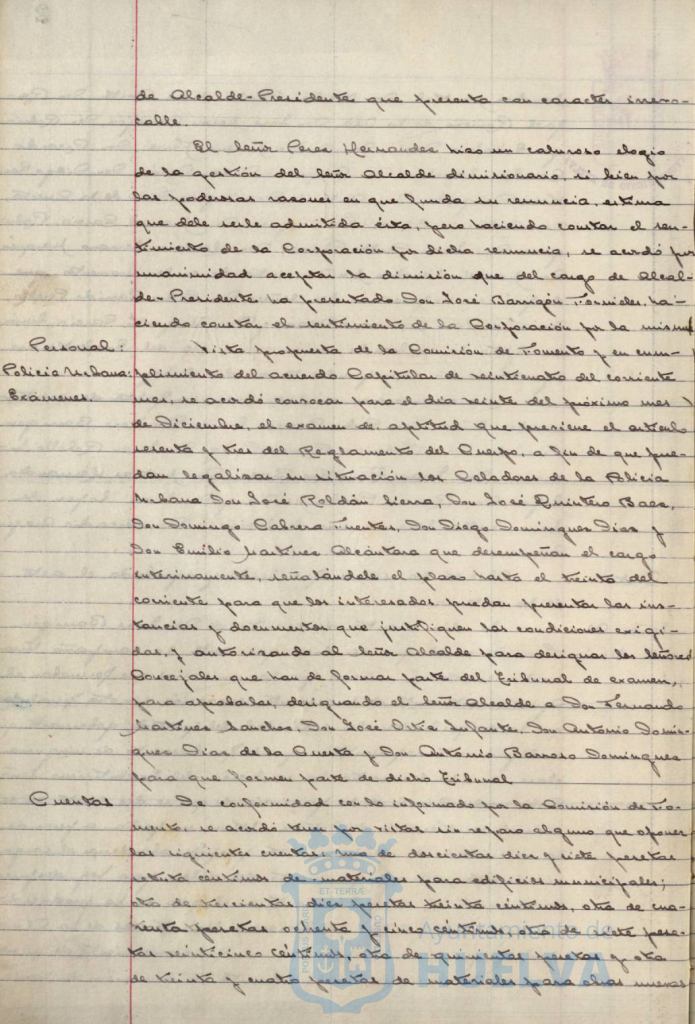 de Alcalde-Presidente que presenta con caracter irrevo-
cable.
El Señor Perez Hernandez hizo un caluroso elogio
de la gestión del Señor Alcalde dimisionario, si bien por
las poderosas razones en que funda su renuncia, estima
que debe serle admitida ésta, pero haciendo constar el sen-
timiento de la Corporación por dicha renuncia, se acordó por
unanimidad aceptar la dimisión que del cargo de Alcal-
de-Presidente ha presentado Don José Barrigón Fornieles, ha-
ciendo constar el sentimiento de la Corporación por la misma
Personal:
Policia Urbana:
Exámenes.
Vista propuesta de la Comisión de Fomento y en cum-
plimiento del acuerdo Capitular de veinticuatro del corriente
mes, se acordó convocar para el dia veinte del próximo mes
de Diciembre, el examen de aptitud que previene el articulo
sesenta y tres del Reglamento del Cuerpo, a fin de que pue-
dan legalizar su situación los Celadores de la Policia
Urbana Don José Roldán Sierra, Don José Quintero Baez,
Don Domingo Cabrera Fuentes, Don Diego Dominguez Diaz y
Don Emilio Martinez Alcántara que desempeñan el cargo
interinamente, señalándole el plazo hasta el treinta del
corriente para que los interesados puedan presentar las ins-
tancias y documentos que justifiquen las condiciones exigi-
das, y autorizando al Señor Alcalde para designar los Señores
Concejales que han de formar parte del Tribunal de examen,
para aprobarlas, designando el Señor Alcalde a Don Fernando
Martinez Sanchez, Don José Infante, Don Antonio Domin-
guez Diaz de la Cuesta y Don Antonio Barroso Dominguez
para que formen parte de dicho Tribunal
Cuentas
De conformidad con lo informado por la Comisión de Fo-
mento, se acordó tener por vistas sin reparo alguno que oponer
las siguientes cuentas: una de doscientas diez y siete pesetas
céntimos de materiales para edificios municipales;
otra de trescientas diez pesetas treinta céntimos, otra de cua-
renta pesetas ochenta y cinco céntimos, otra de siete pese-
tas veinticinco céntimos, otra de quinientas pesetas y otra
de treinta y cuatro pesetas de materiales para obras nuevas
Ayuntamiento de
HUELVA